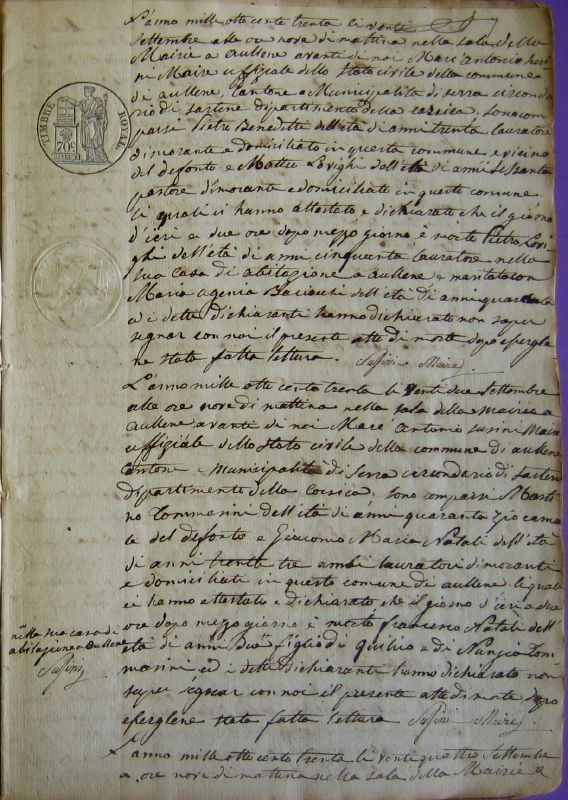 L'anno mille otto cento trenta li venti
settembre alle ore nove di mattina nella sala della
Mairie a aullene avanti di noi Marc Antonio susi
ni Maire uffiziale dello stato civile della commune
di aullene, Cantone e Municipalità di serra circonda
rio di sartene dipartimento della corsica, sono com
parsi Pietro Benedetti dell'età di anni trenta lauratore
dimorante e domiciliato in questa commune e vicino
del defonto e Matteo Lovighi dell'età di anni sessanta
pastore dimorante e domiciliato in questo comune
li quali ci hanno attestato e dichiarato che il giorno
d'ieri a due ore dopo mezzo giorno è morto Pietro Lovi
ghi dell'età di anni cinquanta lauratore nella
sua casa di abitazione a aullene e maritato con
Maria agenia Baciochi dell'età di anni quaranta
ed i detti dichiaranti hanno dichierato non saper
segnar con noi il presente atto di morte dopo eserglie
ne stato fatta lettura. Susini Maire
L'anno mille otto cento trenta li venti due settembre
alle ore nove di mattina nella sala della Mairie a
aullene avanti di noi Marc Antonio susini Maire
uffiziale dello stato civile della comune di aullene
Cantone e Municipalità di serra circondario di sartene
dipartimento della Corsica, sono comparsi Marti
no Tommasini dell'età di anni quaranta zio carna
le del defonto e Giacomo Maria Natali dell'età
di anni trenta tre ambi lauratori dimoranti
e domiciliati in questo comune di aullene li quali
ci hanno attestato e dichiarato che il giorno d'ieri a due
ore dopo mezzo giorno è morto francesco Natali dell'e
tà di anni Due figlio di quilio e di Nunzia Tom
masini ed i detti dichiaranti hanno dichiarato non
saper segnar con noi il presente atto di morte dopo
eserglene stata fatta lettura Susini Maire
L'anno mille otto cento trenta li venti quattro settembre
a ore nove di mattina nella sala della Mairie a
nella sua casa di
abitazione a aullene
Susini
TIMBRE ROYAL
70c